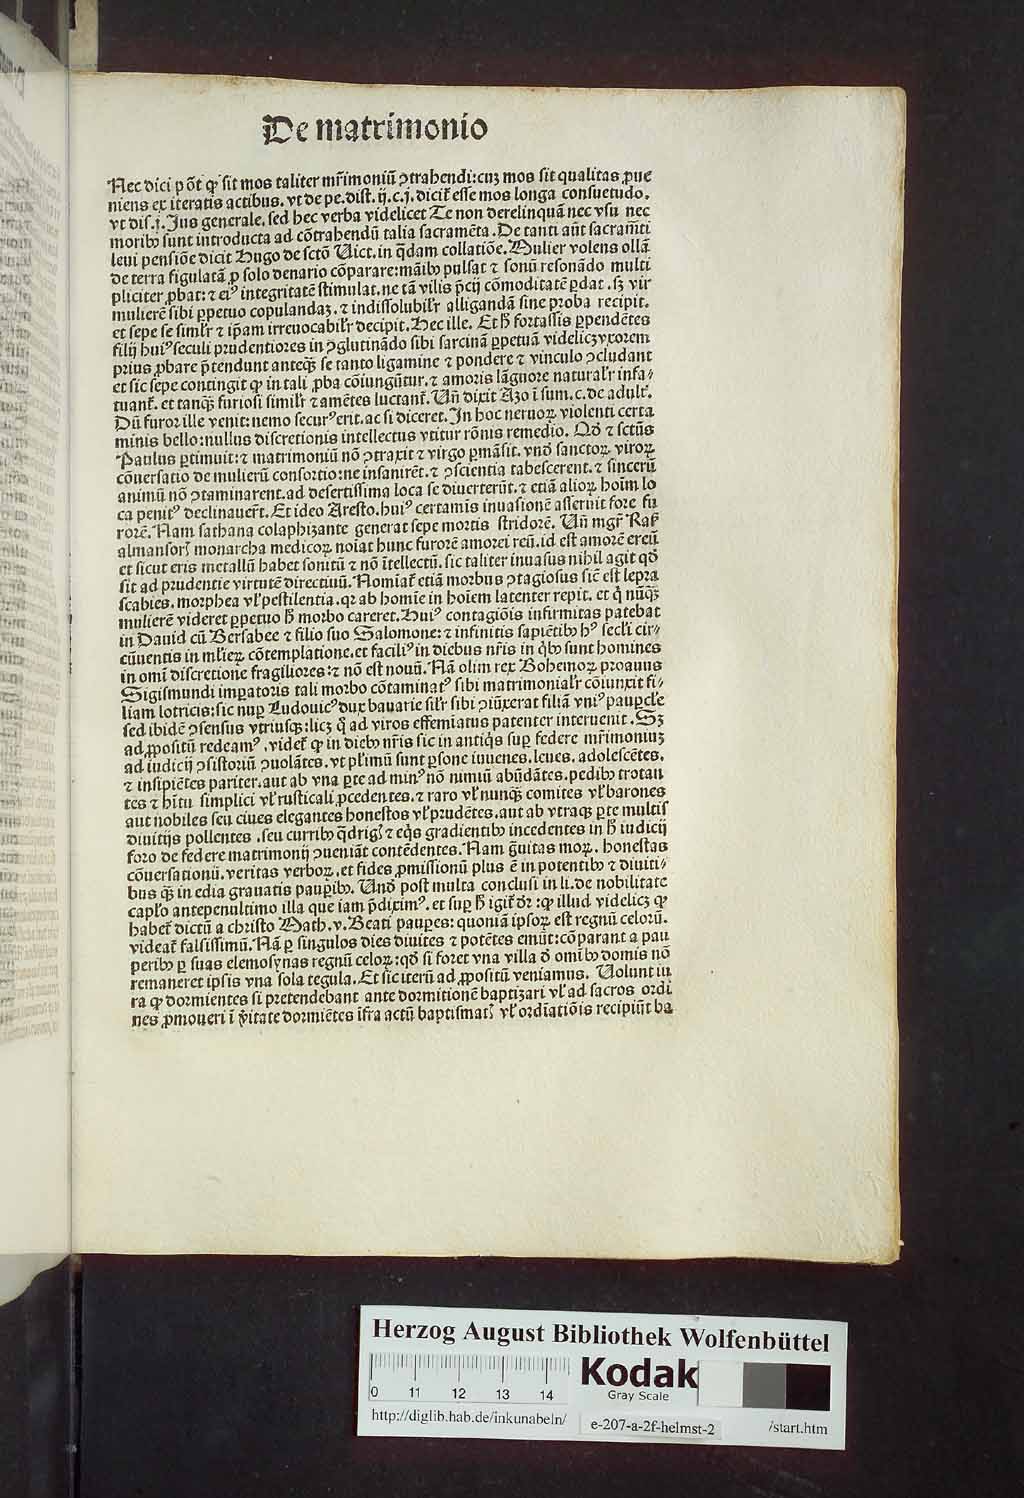 De matrimonio
Nec dici põt qꝫ sit mos taliter mr̃imoniũ ꝯtrahendi:cuꝫ mos sit qualitas ꝓue
niens ex iteratis actibus. vt de pe.dist. ij.c.j. dicit᷑ esse mos longa consuetudo.
vt dis.j. Jus generale. sed hec verba videlicet Te non derelinquã nec vsu nec
moribꝰ sunt introducta ad cõtrahendũ talia sacramẽta. De tanti aũt sacram̃ti
leui pensiõe dicit Hugo de sctõ Uict. in q̃dam collatiõe. Mulier volens ollã
de terra figulatã ꝓ solo denario cõparare:mãibꝰ pulsat ⁊ sonũ resonãdo multi
pliciter ꝓbat:⁊ eiꝰ integritatẽ stimulat. ne tã vilis p̃cij cõmoditatẽ ꝑdat. sꝫ vir
mulierẽ sibi ꝑpetuo copulandaꝫ. ⁊ indissolubilr̃ alligandã sine proba recipit.
et sepe se simlr̃ ⁊ ip̃am irreuocabilr̃ decipit. Hec ille. Et h̃ fortassis ꝑpendẽtes
filij huiꝰ seculi prudentiores in ꝯglutinãdo sibi sarcinã ꝑpetuã videlicꝫ vxorem
prius ꝓbare p̃tendunt anteqꝫ se tanto ligamine ⁊ pondere ⁊ vinculo ꝯcludant
et sic sepe contingit qꝫ in tali ꝓba cõiungũtur. ⁊ amoris lãguore naturalr̃ infa⸗
tuant᷑. et tanqꝫ furiosi similr̃ ⁊ amẽtes luctant᷑. Uñ dixit Azo ĩ sum. c. de adult᷑.
Dũ furor ille venit: nemo securꝰ erit. ac si diceret. In hoc neruoꝝ violenti certa
minis bello:nullus discretionis intellectus vtitur rõnis remedio. Qđ ⁊ sctũs
Paulus ꝑtimuit: ⁊ matrimoniũ nõ ꝯtraxit ⁊ virgo ꝑmãsit. vnđ sanctoꝝ. viroꝝ
cõuersatio de mulierũ consortio:ne insanirẽt. ⁊ ꝯscientia tabescerent. ⁊ sincerũ
animũ nõ ꝯtaminarent. ad desertissima loca se diuerterũt. ⁊ etiã alioꝝ hoĩm lo
ca penitꝰ declinauer̃t. Et ideo Aresto. huiꝰ certamĩs inuasionẽ asseruit fore fu
rorẽ. Nam sathana colaphizante generat sepe mortis stridorẽ. Uñ mgr̃ Ras᷑
almansor᷑ monarcha medicoꝝ noĩat hunc furorẽ amorei reũ. id est amorẽ ereũ
et sicut eris metallũ habet sonitũ ⁊ nõ ĩtellectũ. sic taliter inuasus nihil agit qđ
sit ad prudentie virtutẽ directiuũ. Nomiat᷑ etiã morbus ꝯtagiosus sicẽ est lepra
scabies. morphea vl̃ pestilentia. qr ab homĩe in hoĩem latenter repit. et q̃ nũqꝫ
mulierẽ videret ꝑpetuo h̃ morbo careret. Huiꝰ contagiõis infirmitas patebat
in Dauid cũ Bersabee ⁊ filio suo Salomone: ⁊ infinitis sapiẽtibꝰ hꝰ secl̃i cir⸗
cũuentis in ml̃ieꝝ cõtemplatione. et faciliꝰ in diebus nr̃is in q̃bꝰ sunt homines
in omĩ discretione fragiliores: ⁊ nõ est nouũ. Nã olim rex Bohemoꝝ proauus
Sigismundi imꝑatoris tali morbo cõtaminatꝰ sibi matrimonialr̃ cõiunxit fi⸗
liam lotricis: sic nuꝑ Ludouicꝰ dux bauarie silr̃ sibi ꝯiũxerat filiã vniꝰ pauꝑcl̃e
sed ibidẽ ꝯsensus vtriusqꝫ: licꝫ q̃ ad viros effemiatus patenter interuenit. Sꝫ
ad ꝓpositũ redeamꝰ. videt᷑ qꝫ in diebꝰ nr̃is sic in antiq̃s suꝑ federe mr̃imoniuꝫ
ad iudicij ꝯsistoriũ ꝯuolãtes. vt pl̃imũ sunt ꝑsone iuuenes. leues. adolescẽtes.
⁊ insipiẽtes pariter. aut ab vna ꝑte ad minꝰ nõ nimiũ abũdãtes. pedibꝰ trotan
tes ⁊ hĩtu simplici vl̃ rusticali ꝓcedentes. ⁊ raro vl̃ nunqꝫ comites vl̃ barones
aut nobiles seu ciues elegantes honestos vl̃ prudẽtes. aut ab vtraqꝫ ꝑte multis
diuitijs pollentes. seu curribꝰ q̃drig᷑ ⁊ eq̃s gradientibꝰ incedentes in h̃ iudicij
foro de federe matrimonij ꝯueniãt contẽdentes. Nam g̃uitas moꝝ. honestas
cõuersationũ. veritas verboꝝ. et fides ꝓmissionũ plus ẽ in potentibꝰ ⁊ diuiti⸗
bus qꝫ in edia grauatis pauꝑibꝰ. Unđ post multa conclusi in li. de nobilitate
capl̃o antepenultimo illa que iam p̃diximꝰ. et suꝑ h̃ igit᷑ dr̃: qꝫ illud videlicꝫ qꝫ
habet᷑ dictũ a christo Math. v. Beati pauꝑes: quoniã ipsoꝝ est regnũ celorũ.
videat᷑ falsissimũ. Nã ꝑ singulos dies diuites ⁊ potẽtes emũt:cõparant a pau
peribꝰ ꝑ suas elemosynas regnũ celoꝝ:qđ si foret vna villa đ omĩbꝰ domis nõ
remaneret ipsis vna sola tegula. Et sic iterũ ad ꝓpositũ veniamus. Uolunt iu
ra qꝫ dormientes si pretendebant ante dormitionẽ baptizari vl̃ ad sacros ordi
nes ꝓmoueri ĩ ṽitate dormiẽtes ĩfra actũ baptismat᷑ vl̃ ordĩatiõis recipiũt ba
Herzog August Bibliothek Wolfenbüttel
0 11 12 13 14
Kodak
Gray Scale
http://diglib.hab.de/inkunabeln/
e-207-a-2f-helmst-2
/start.htm